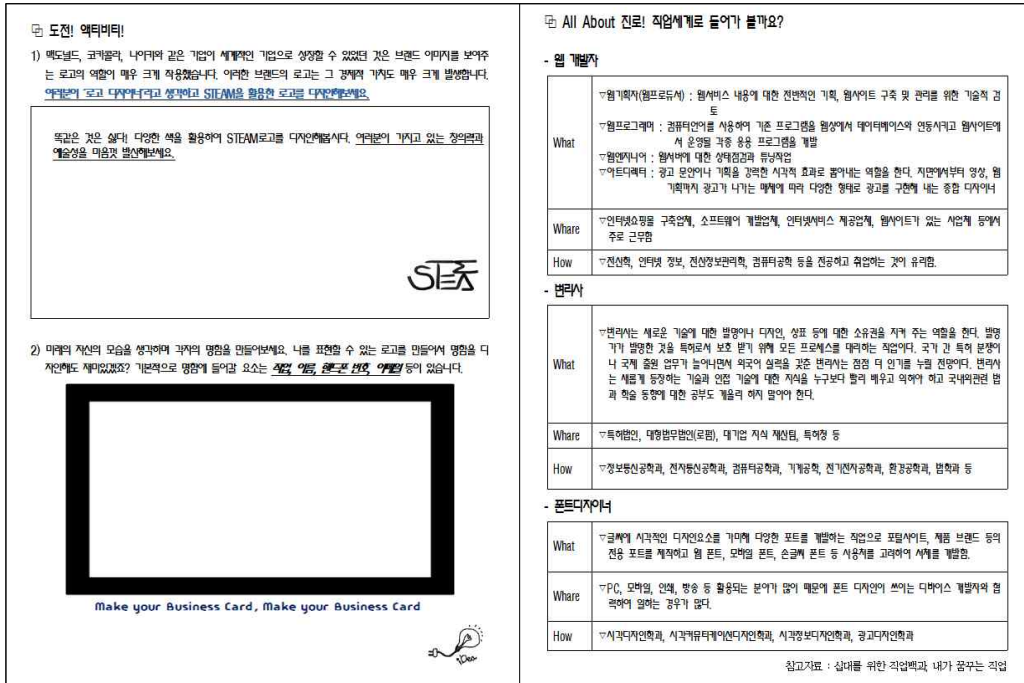 도전! 액티비티!
1) 맥도널드, 코카콜라, 나이키와 같은 기업이 세계적인 기업으로 성장할 수 있었던 것은 브랜드 이미지를 보여주
는 로고의 역할이 매우 크게 작용했습니다. 이러한 브랜드의 로고는 그 경제적 가치도 매우 크게 발생합니다.
여러분이 '로고 디자이너'라고 생각하고 STEAM을 활용한 로고를 디자인해보세요.
똑같은 것은 싫다! 다양한 색을 활용하여 STEAM로고를 디자인해봅시다. 여러분이 가지고 있는 창의력과
예술성을 마음껏 발산해보세요.
2) 미래의 자신의 모습을 생각하며 각자의 명함을 만들어보세요. 나를 표현할 수 있는 로고를 만들어서 명함을 디
자인해도 재미있겠죠? 기본적으로 명함에 들어갈 요소는 직업, 이름, 핸드폰 번호, 이메일 등이 있습니다.
Make your Business Card, Make your Business Card
iDea
All About 진로! 직업세계로 들어가 볼까요?
- 웹 개발자
What
▽웹기획자(웹프로듀서) : 웹서비스 내용에 대한 전반적인 기획, 웹사이트 구축 및 관리를 위한 기술적 검
토
▽웹프로그래머 : 컴퓨터언어를 사용하여 기존 프로그램을 웹상에서 데이터베이스와 연동시키고 웹사이트에
서 운영될 각종 응용 프로그램을 개발
▽웹엔지니어 : 웹서버에 대한 상태점검과 튜닝작업
▽아트디렉터 : 광고 문안이나 기획을 강력한 시각적 효과로 뽑아내는 역할을 한다. 지면에서부터 영상, 웹
기획까지 광고가 나가는 매체에 따라 다양한 형태로 광고를 구현해 내는 종합 디자이너
Whare
▽인터넷쇼핑몰 구축업체, 소프트웨어 개발업체, 인터넷서비스 제공업체, 웹사이트가 있는 사업체 등에서
주로 근무함
How
▽전산학, 인터넷 정보, 전산정보관리학, 컴퓨터공학 등을 전공하고 취업하는 것이 유리함.
- 변리사
What
▽변리사는 새로운 기술에 대한 발명이나 디자인, 상표 등에 대한 소유권을 지켜 주는 역할을 한다. 발명
가가 발명한 것을 특허로서 보호 받기 위해 모든 프로세스를 대리하는 직업이다. 국가 간 특허 분쟁이
나 국제 출원 업무가 늘어나면서 외국어 실력을 갖춘 변리사는 점점 더 인기를 누릴 전망이다. 변리사
는 새롭게 등장하는 기술과 인접 기술에 대한 지식을 누구보다 빨리 배우고 익혀야 하고 국내외관련 법
과 학술 동향에 대한 공부도 게을리 하지 말아야 한다.
Whare
▽특허법인, 대형법무법인(로펌), 대기업 지식 재산팀, 특허청 등
How
▽정보통신공학과, 전자통신공학과, 컴퓨터공학과, 기계공학, 전기전자공학과, 환경공학과, 법학과 등
- 폰트디자이너
What
▽글씨에 시각적인 디자인요소를 가미해 다양한 포트를 개발하는 직업으로 포털사이트, 제품 브랜드 등의
전용 포트를 제작하고 웹 폰트, 모바일 폰트, 손글씨 폰트 등 사용자를 고려하여 서체를 개발함.
Whare
▽PC, 모바일, 인쇄, 방송 등 활용되는 분야가 많이 때문에 폰트 디자인이 쓰이는 디바이스 개발자와 협
력하여 일하는 경우가 많다.
How
▽시각디자인학과, 시각커뮤티케이션디자인학과, 시각정보디자인학과, 광고디자인학과
참고자료 : 십대를 위한 직업백과, 내가 꿈꾸는 직업